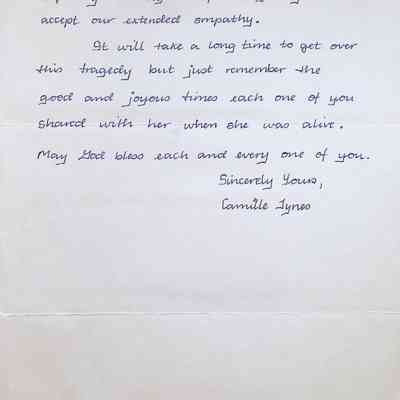 accept our extended empathy.
It will take a long time to get over
this tragedy but just remember the
good and joyous times each one of you
shared with her when she was alive.
May God bless each and every one of you.
Sincerely Yours,
Camille Tynes